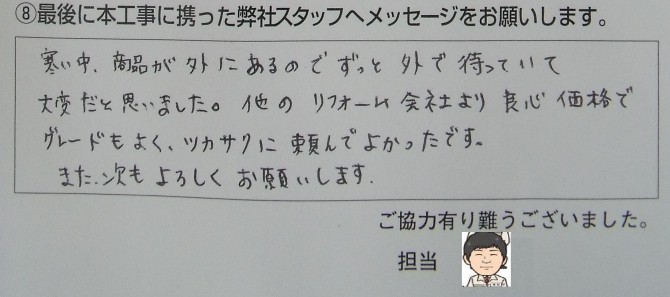 ⑧最後に本工事に携った弊社スタッフへメッセージをお願いします。
寒い中、商品が外にあるのでずっと外で待っていて
大変だと思いました。他のリフォーム会社より良心価格で
グレードもよく、ツカサクに頼んでよかったです。
また、次もよろしくお願いします.
ご協力有り難うございました。
担当